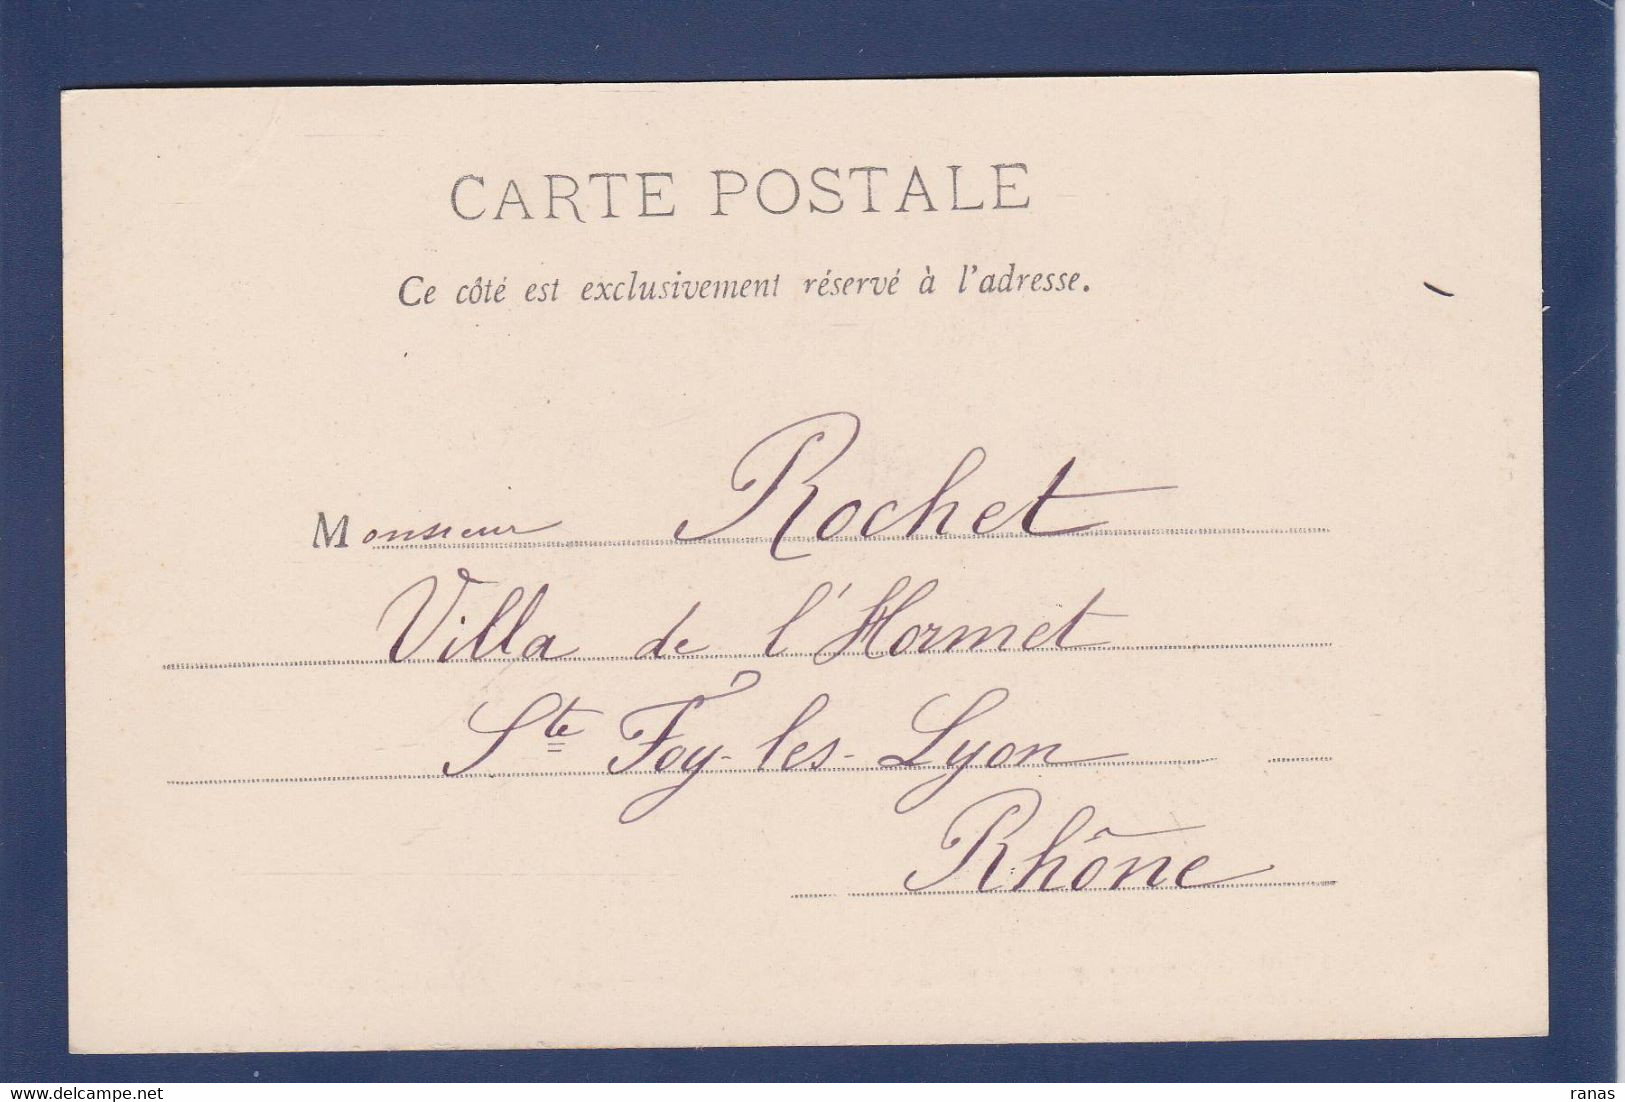 CARTE POSTALE
Ce côté est exclusivement réservé à l'adresse.
Monsieur Rochet
Villa de l'Hormet
Ste Foy-les-Lyon
Rhône
delcampe.net
ranas